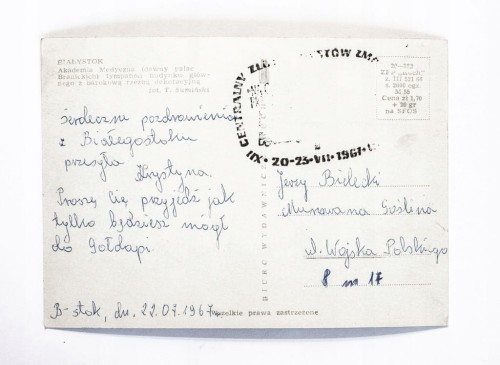 BIAŁYSTOK
Akademia Medyczna (dawny pałac
Branickich) tympanon budynku głów-
nego z barokową rzeźbą dekoracyjną
fot. T.
serdeczne pozdrowienia
z Białegostoku
przesyła
Krystyna
Proszę Cię przyjedź jak
tylko będziesz mógł
do Gołdapi.
B-stok, dn. 22.07.1967.
Wszelkie prawa zastrzeżone
BIURO WYDAWNICZE
CENTRALNY
XII · 20-23-VII-1967
z. III
Cena zł 1,70
+ 30 gr
na SFOS
Jerzy Bielecki
Murowana Goślina
ul. Wojska Polskiego
8 m 17